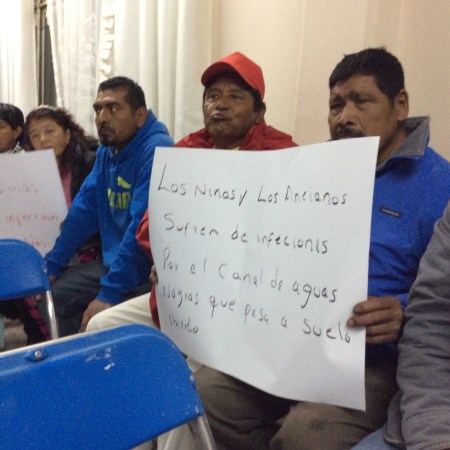 Los Niños y Los Ancianos
Sufren de infeciones
Por el Canal de aguas
Negras que pasa a Suelo
Avierto